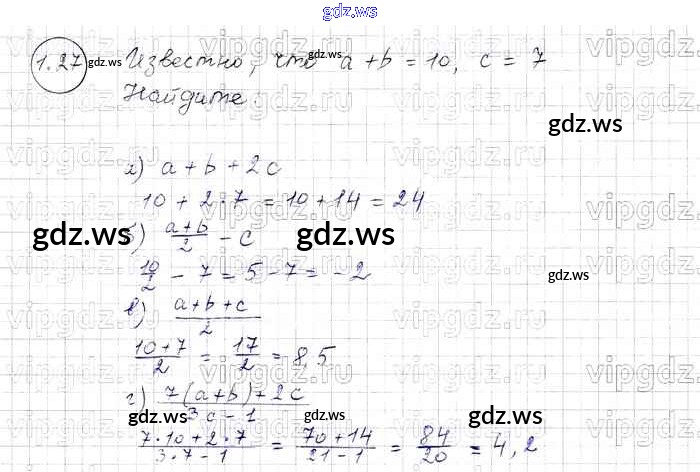 gdz.ws
1.27 gdz.ws Известно, что gdz.ws a + b = 10, c = 7
Найдите:
gdz.ws
а) a + b + 2c
10 + 2·7 = 10 + 14 = 24
gdz.ws б) (a+b)/2 - c gdz.ws
10/2 - 7 = 5 - 7 = -2 gdz.ws
в) (a+b+c)/2
(10+7)/2 = 17/2 = 8,5
г) (7(a+b)+2c)/(3c-1)
gdz.ws gdz.ws
(7·10+2·7)/(3·7-1) = (70+14)/(21-1) = 84/20 = 4,2
vipgdz.ws vipgdz.ws vipgdz.ws